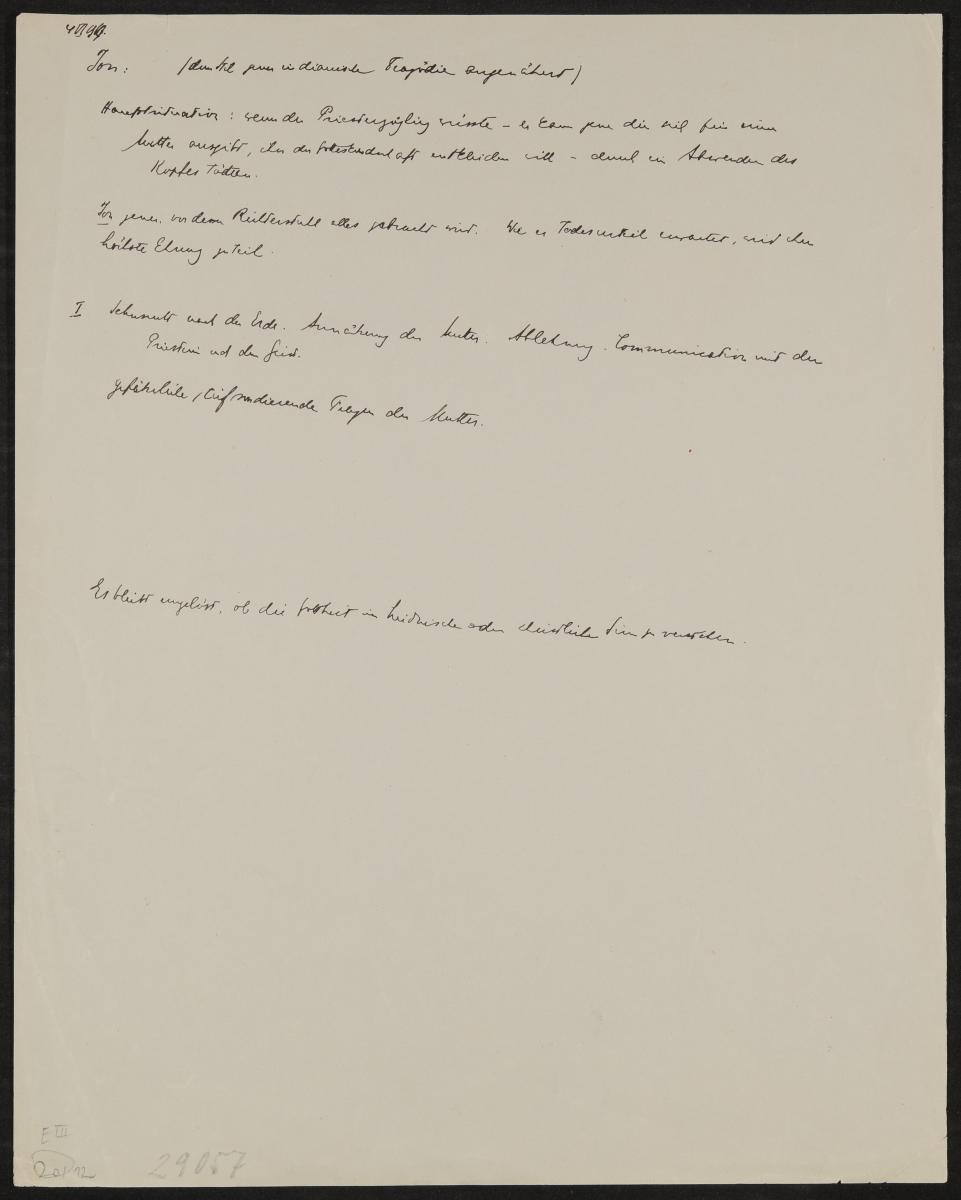 Ion: (dunkel
Tragödie angenähert)
Hauptsituation: wenn der Priesterzögling wüsste – er kann jene die sich für seine
Mutter ausgibt, ihn der Gotteskindschaft entkleiden will – durch ein Abwenden des
Kopfes töten.
Ion jener, vor dessen Richterstuhl alles gebracht wird. Wie er Todesurteil erwartet, wird ihm
höchste Ehrung zuteil.
I Sehnsucht nach der Erde. Annäherung der Mutter. Ablehnung. Communication mit der
Priesterin und dem Greis.
gefährliche, tief sondierende Fragen der Mutter.
Es bleibt ungelöst, ob die Gottheit im heidnischen oder christlichen Sinn zu verstehen.
E III
29057